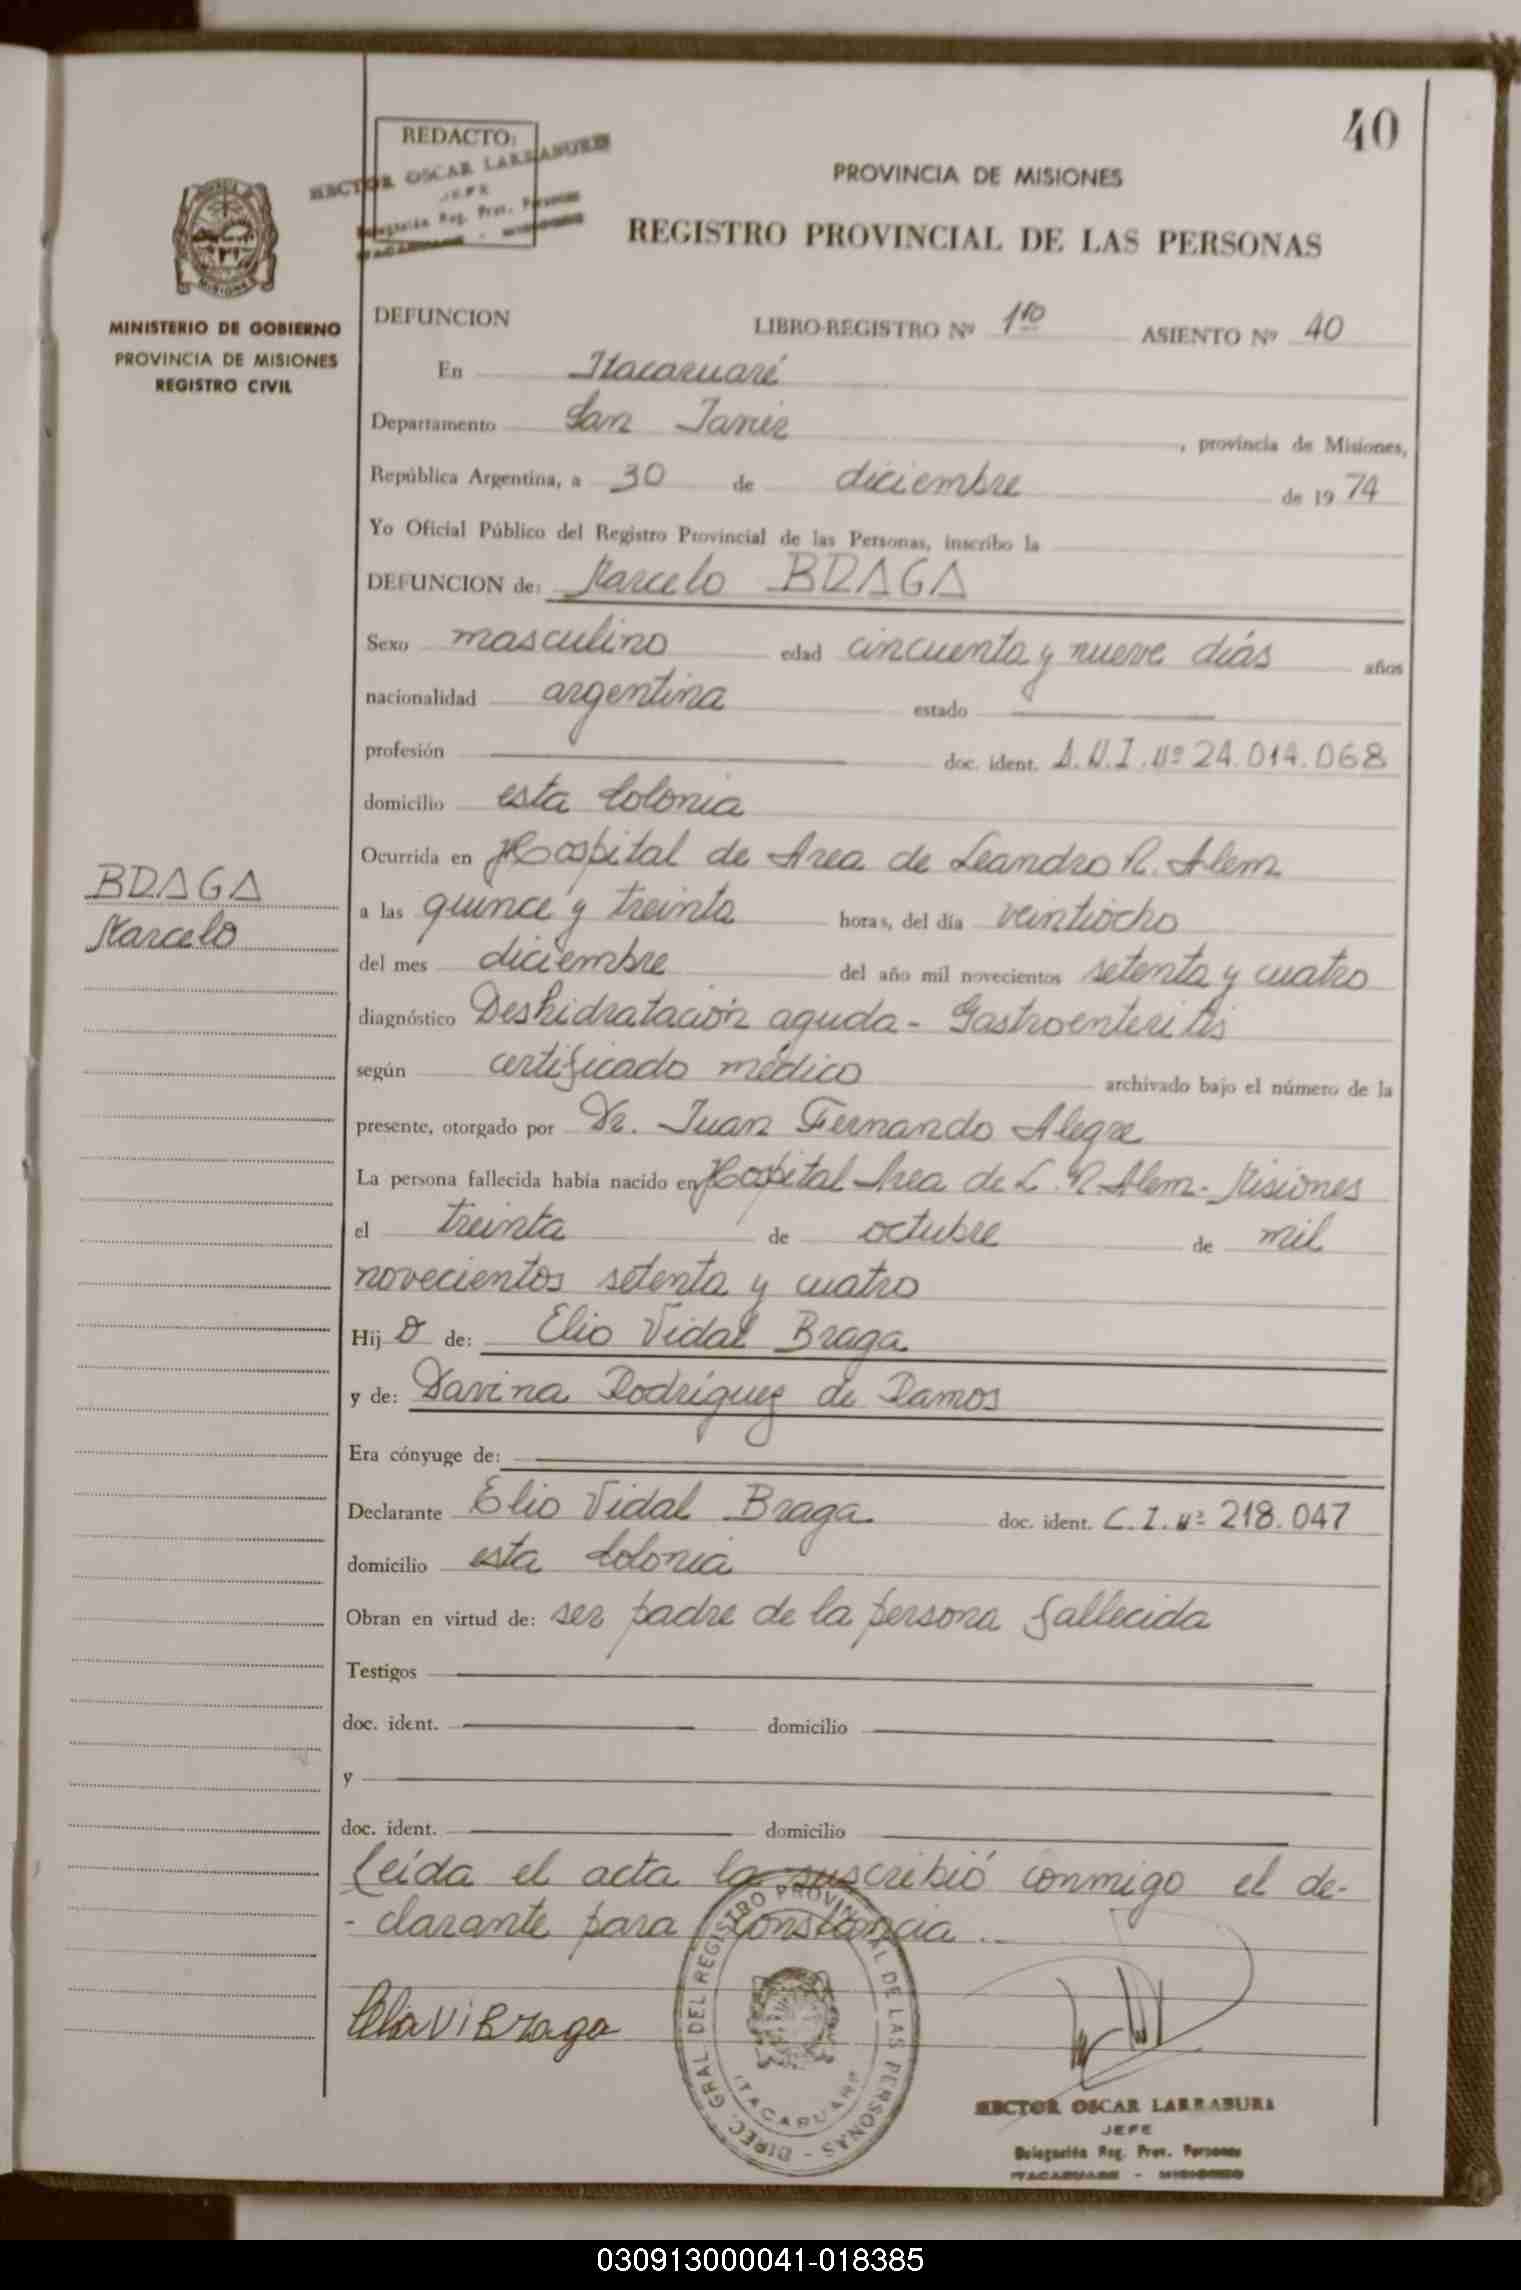 40
REDACTO:
HECTOR OSCAR LARRABURE
JEFE
Delegación Reg. Prov. Personas
ITACARUARE - MISIONES
PROVINCIA DE MISIONES
REGISTRO PROVINCIAL DE LAS PERSONAS
MISIONES
MINISTERIO DE GOBIERNO
PROVINCIA DE MISIONES
REGISTRO CIVIL
DEFUNCION LIBRO-REGISTRO Nº 1ro ASIENTO Nº 40
En Itacaruaré
Departamento San Javier, provincia de Misiones,
República Argentina, a 30 de diciembre de 1974
Yo Oficial Público del Registro Provincial de las Personas, inscribo la
DEFUNCION de: Marcelo BRAGA
Sexo masculino edad cincuenta y nueve días años
nacionalidad argentina estado
profesión doc. ident. D.N.I. Nº 24.014.068
domicilio esta Colonia
Ocurrida en Hospital de Area de Leandro N. Alem
BRAGA
Marcelo
a las quince y treinta horas, del día veintiocho
del mes diciembre del año mil novecientos setenta y cuatro
diagnóstico Deshidratación aguda - Gastroenteritis
según certificado médico archivado bajo el número de la
presente, otorgado por Dr. Juan Fernando Alegre
La persona fallecida había nacido en Hospital Area de L. N. Alem - Misiones
el treinta de octubre de mil
novecientos setenta y cuatro
Hijo de: Elio Vidal Braga
y de: Davina Rodríguez de Ramos
Era cónyuge de:
Declarante Elio Vidal Braga doc. ident. C.I. Nº 218.047
domicilio esta Colonia
Obran en virtud de: ser padre de la persona fallecida
Testigos
doc. ident. domicilio
y
doc. ident. domicilio
Leída el acta la suscribió conmigo el de-
- clarante para constancia.-
Elio Vi Braga
DIREC. GRAL. DEL REGISTRO PROVINCIAL DE LAS PERSONAS - ITACARUARE
HECTOR OSCAR LARRABURE
JEFE
Delegación Reg. Prov. Personas
ITACARUARE - MISIONES
030913000041-018385